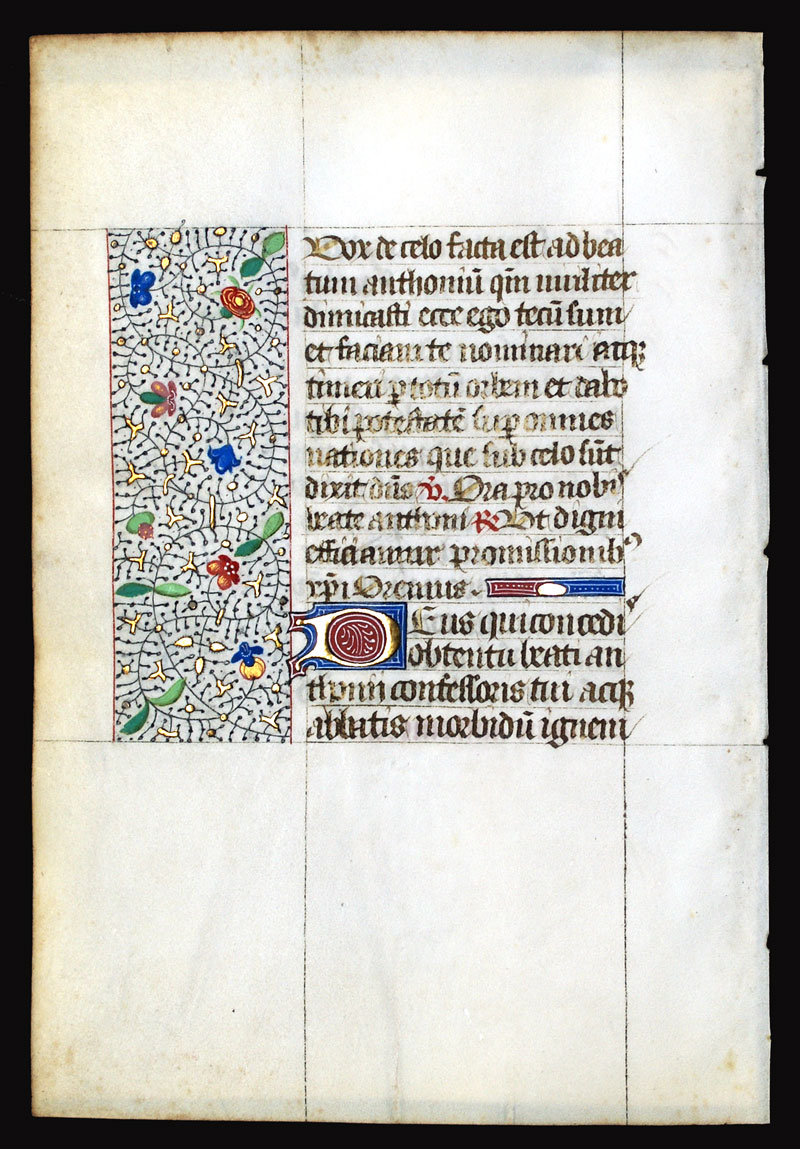 Vox de celo facta est ad bea
tum anthoniū qm̄ viriliter
dimicasti ecce ego tecū sum
et faciam te nominari atqꝫ
timeri ꝑ totū orbem et dabo
tibi potestatē suꝑ omnes
nationes que sub celo sūt
dixit dn̄s ℣. Ora pro nobis
beate anthoni ℟ Vt digni
efficiamur promissionibꝰ
xp̄i Oremus.
Deus qui concedis
obtentu beati an
thonii confessoris tui atqꝫ
abbatis morbidū ignem